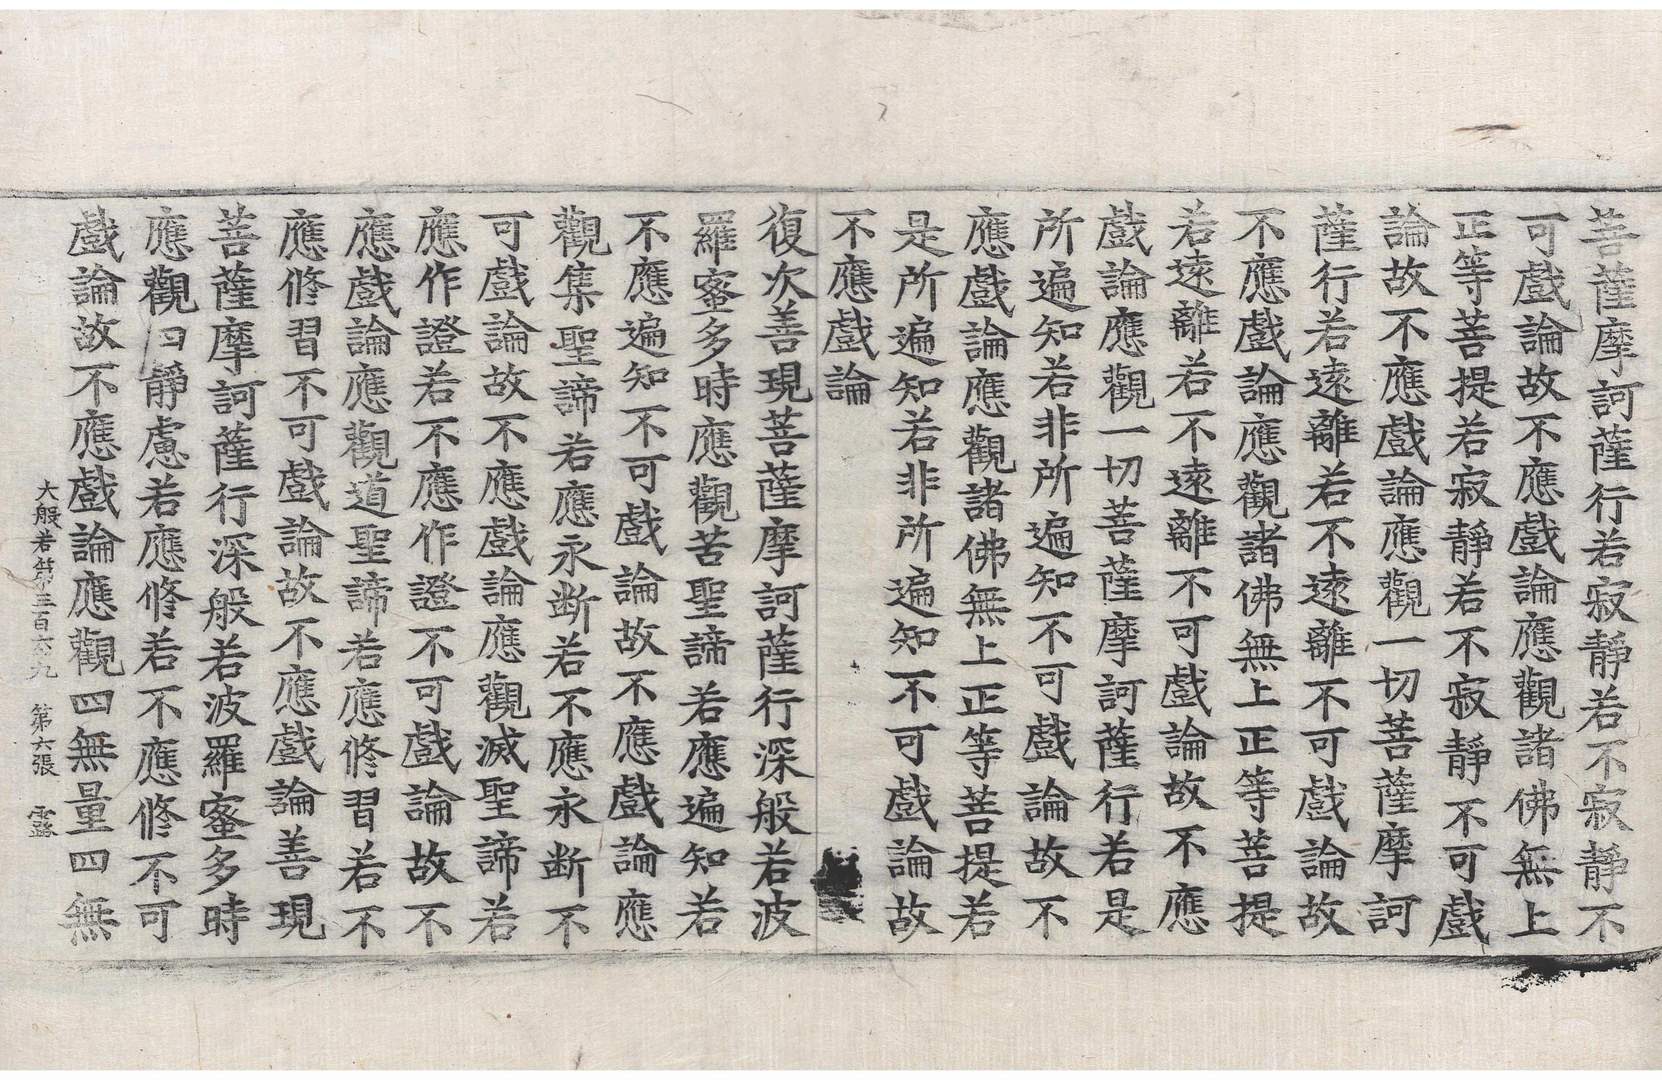 菩薩摩訶薩行若寂靜若不寂靜不
可戲論故不應戲論應觀諸佛無上
正等菩提若寂靜若不寂靜不可戲
論故不應戲論應觀一切菩薩摩訶
薩行若遠離若不遠離不可戲論故
不應戲論應觀諸佛無上正等菩提
若遠離若不遠離不可戲論故不應
戲論應觀一切菩薩摩訶薩行若是
所遍知若非所遍知不可戲論故不
應戲論應觀諸佛無上正等菩提若
是所遍知若非所遍知不可戲論故
不應戲論
復次善現菩薩摩訶薩行深般若波
羅蜜多時應觀苦聖諦若應遍知若
不應遍知不可戲論故不應戲論應
觀集聖諦若應永断若不應永断不
可戲論故不應戲論應觀滅聖諦若
應作證若不應作證不可戲論故不
應戲論應觀道聖諦若應修習若不
應修習不可戲論故不應戲論善現
菩薩摩訶薩行深般若波羅蜜多時
應觀四靜慮若應修若不應修不可
戲論故不應戲論應觀四無量四無
大般若第三百六九 第六張 露